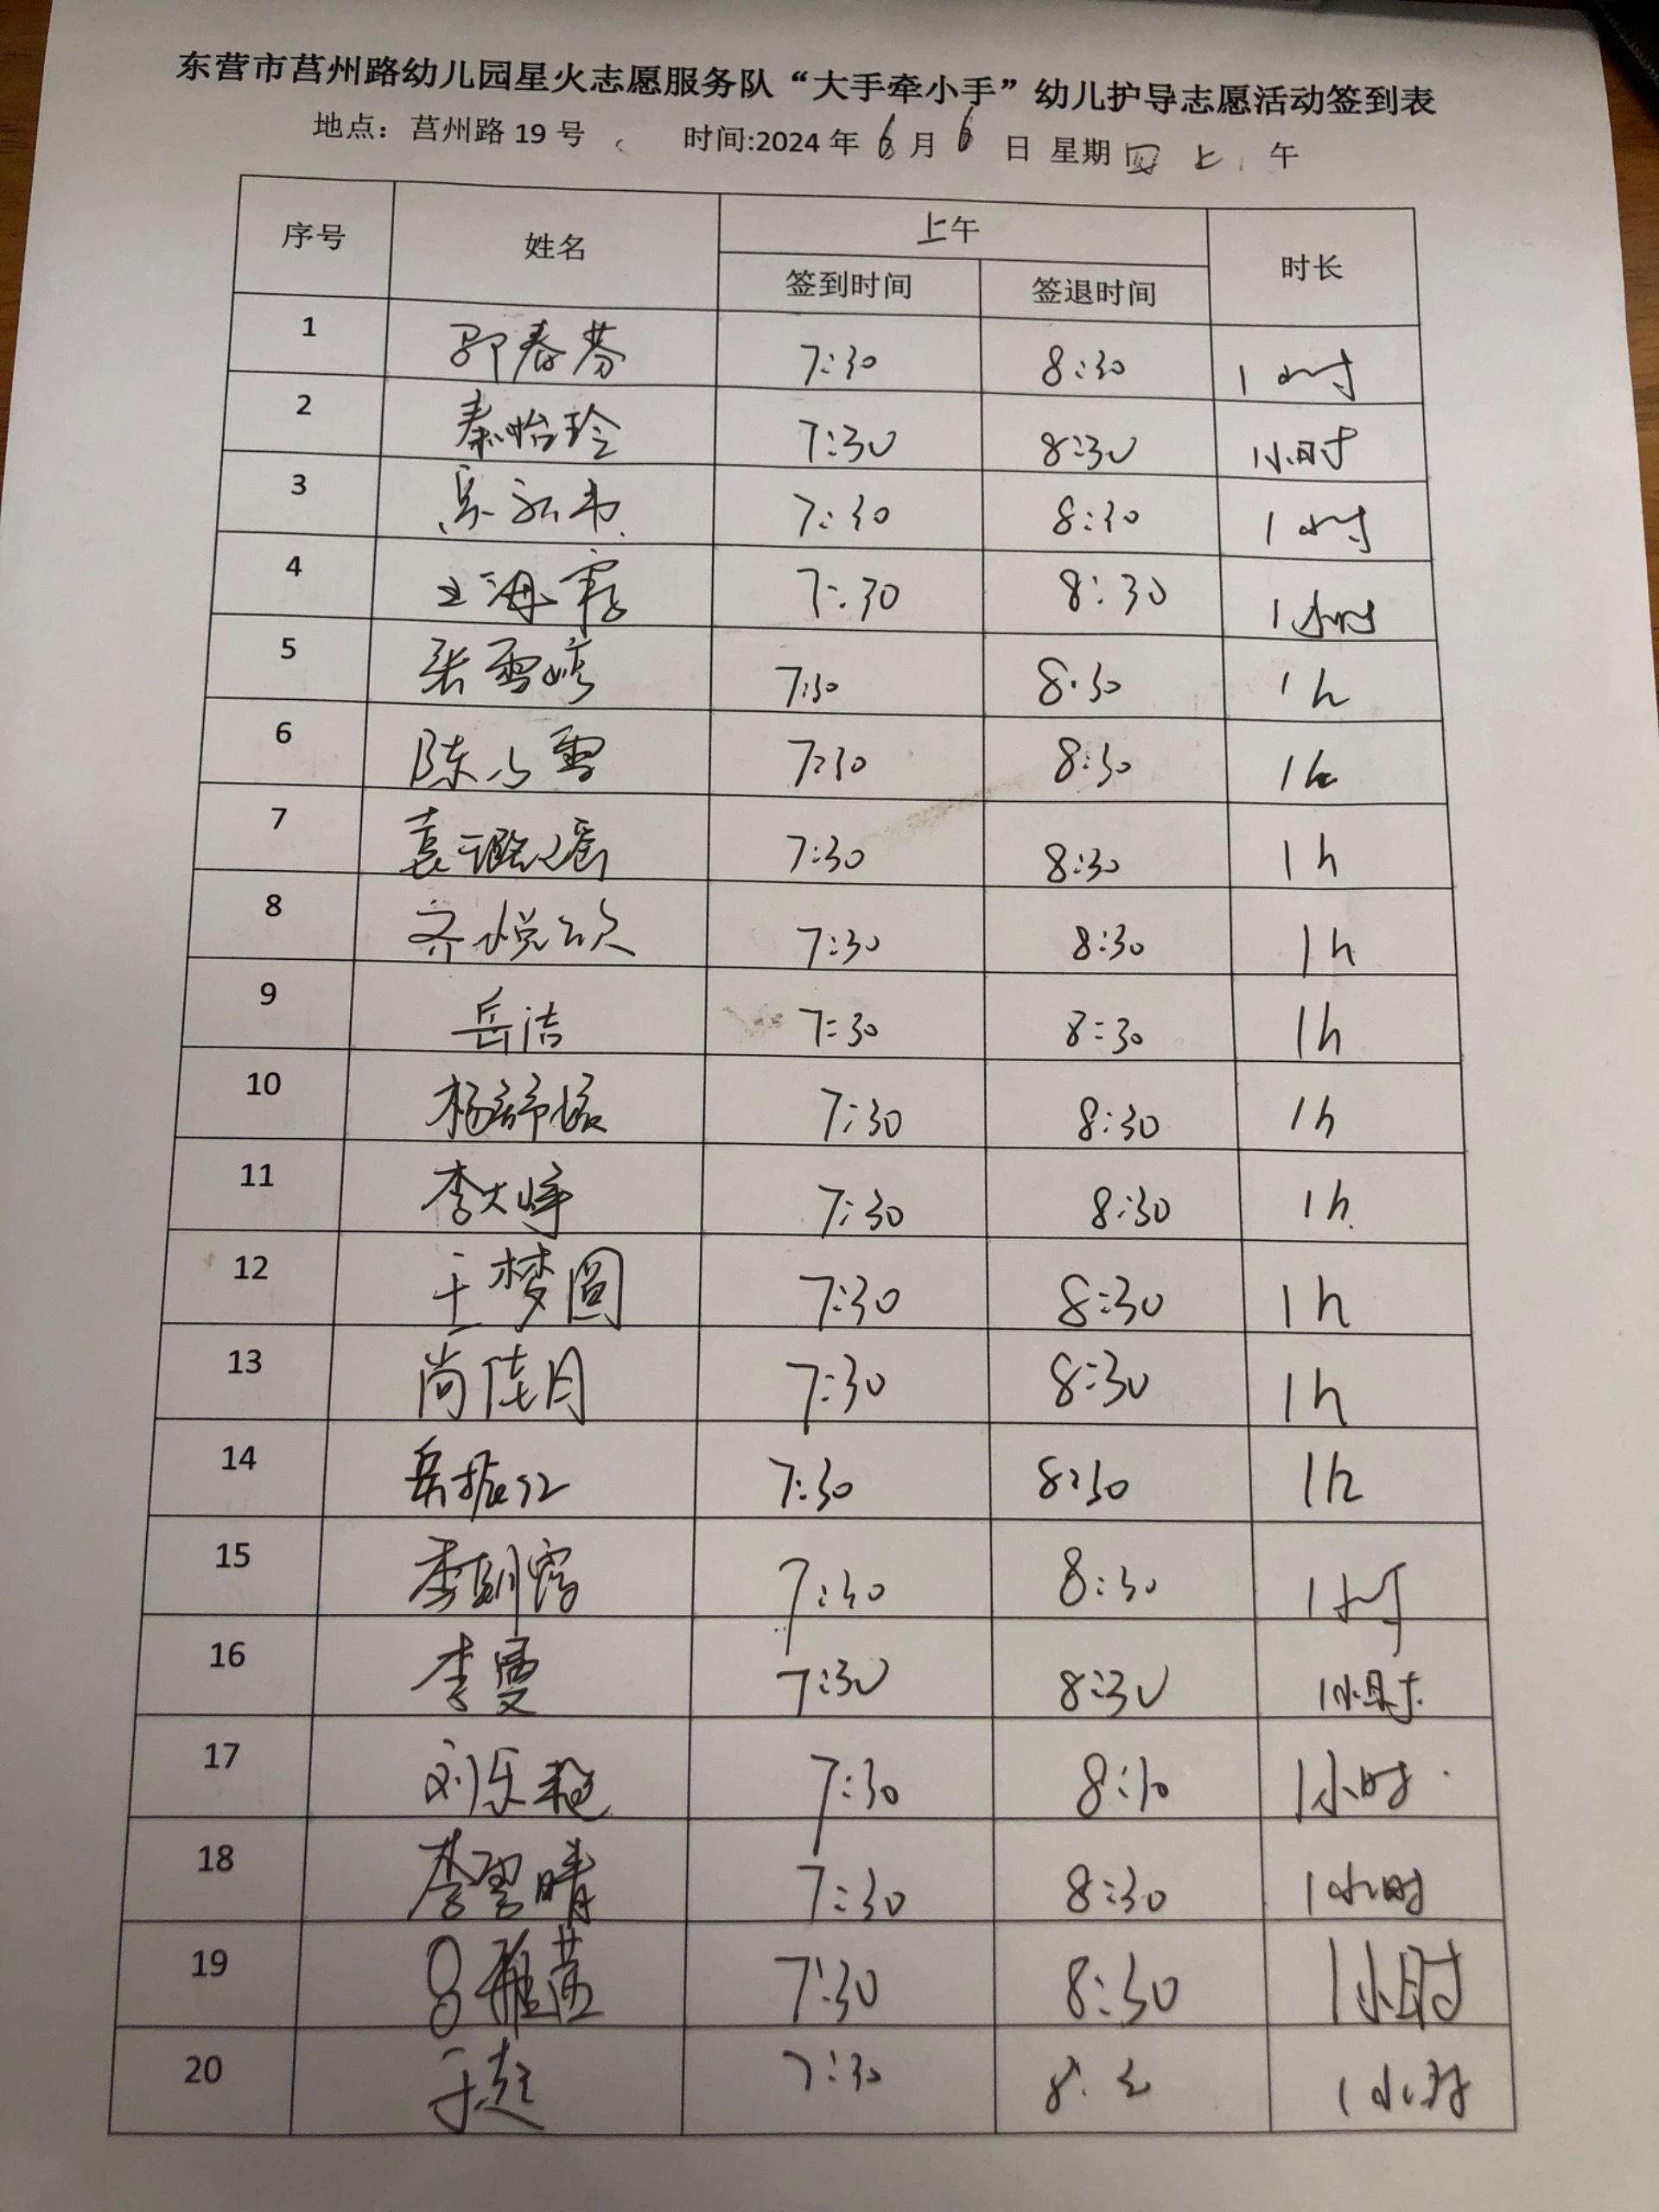 东营市莒州路幼儿园星火志愿服务队“大手牵小手”幼儿护导志愿活动签到表
地点：莒州路 19 号 时间:2024 年 6 月 6 日 星期 四 上 午
序号 姓名 上午 时长
签到时间 签退时间
1 郭春芬 7:30 8:30 1小时
2 秦怡玲 7:30 8:30 1小时
3 7:30 8:30 1小时
4 王海霞 7:30 8:30 1小时
5 张雪婷 7:30 8:30 1h
6 陈小雪 7:30 8:30 1h
7 袁璐瑶 7:30 8:30 1h
8 齐悦欣 7:30 8:30 1h
9 岳洁 7:30 8:30 1h
10 杨舒 7:30 8:30 1h
11 李大峰 7:30 8:30 1h
12 王梦圆 7:30 8:30 1h
13 尚佳月 7:30 8:30 1h
14 岳振红 7:30 8:30 1h
15 李 7:30 8:30 1小时
16 李曼 7:30 8:30 1小时
17 刘乐艳 7:30 8:30 1小时
18 李翠晴 7:30 8:30 1小时
19 吕雅茜 7:30 8:30 1小时
20 于超 7:30 8:30 1小时